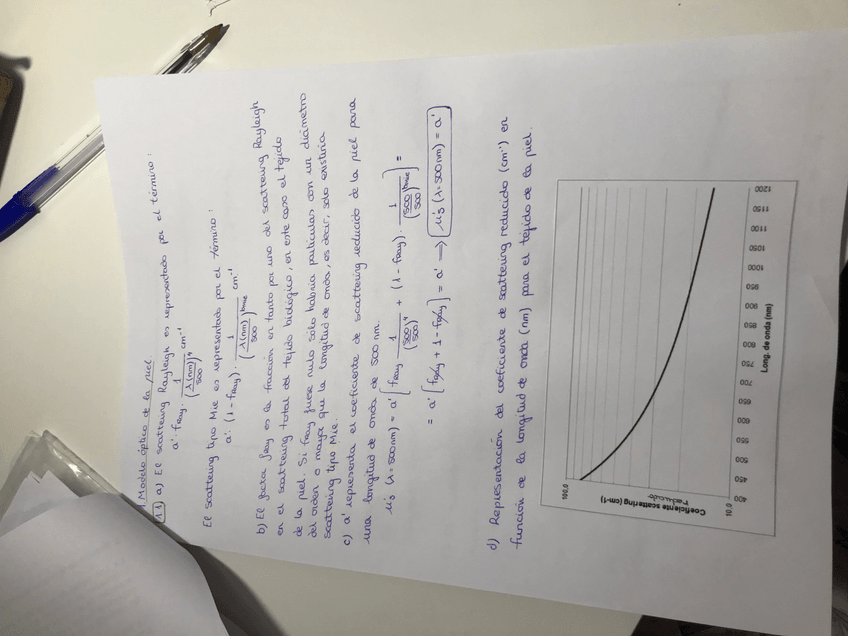 1. Modelo óptico de la piel
1.1 a) El scattering Rayleigh es representado por el término:
a' · fray · 1/(λ(nm)/500)⁴ cm⁻¹
El scattering tipo Mie es representado por el término:
a' · (1 - fray) · 1/(λ(nm)/500)^bmie cm⁻¹
b) El factor fray es la fracción en tanto por uno del scattering Rayleigh
en el scattering total del tejido biológico, en este caso el tejido
de la piel. Si fray fuese nulo sólo habría partículas con un diámetro
del orden o mayor que la longitud de onda, es decir, solo existiría
scattering tipo Mie.
c) a' representa el coeficiente de scattering reducido de la piel para
una longitud de onda de 500 nm.
μ's (λ=500nm) = a' [fray 1/(500/500)⁴ + (1 - fray) · 1/(500/500)^bmie] =
= a' [fray + 1 - fray] = a' ⟹ μ's (λ=500nm) = a'
d) Representación del coeficiente de scattering reducido (cm⁻¹) en
función de la longitud de onda (nm) para el tejido de la piel.
Coeficiente scattering (cm-1)
reducido
100,0
10,0
400 450 500 550 600 650 700 750 800 850 900 950 1000 1050 1100 1150 1200
Long. de onda (nm)